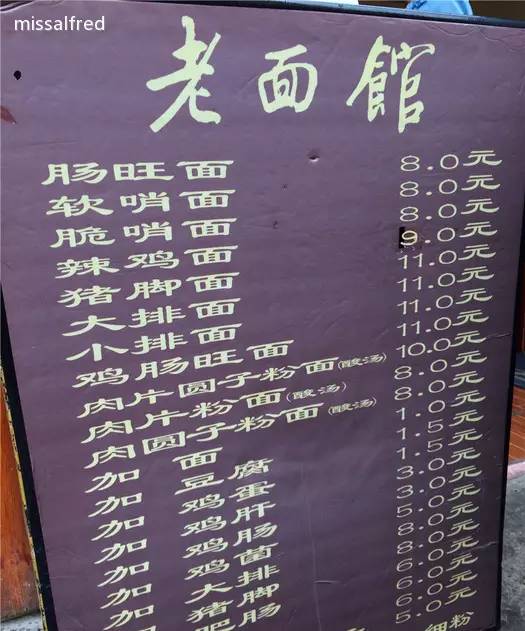 missalfred
老面館
肠旺面 8.0元
软哨面 8.0元
脆哨面 8.0元
辣鸡面 9.0元
猪脚面 11.0元
大排面 11.0元
小排面 11.0元
鸡肠旺面 11.0元
肉片圆子粉面(酸汤) 10.0元
肉片粉面(酸汤) 8.0元
肉圆子粉面(酸汤) 8.0元
加面 1.0元
加豆腐 1.5元
加鸡蛋 1.5元
加鸡肝 3.0元
加鸡肠 3.0元
加鸡菌 5.0元
加大排 8.0元
加猪脚 8.0元
加肥肠 6.0元
6.0元
6.0元
5.0元
细粉